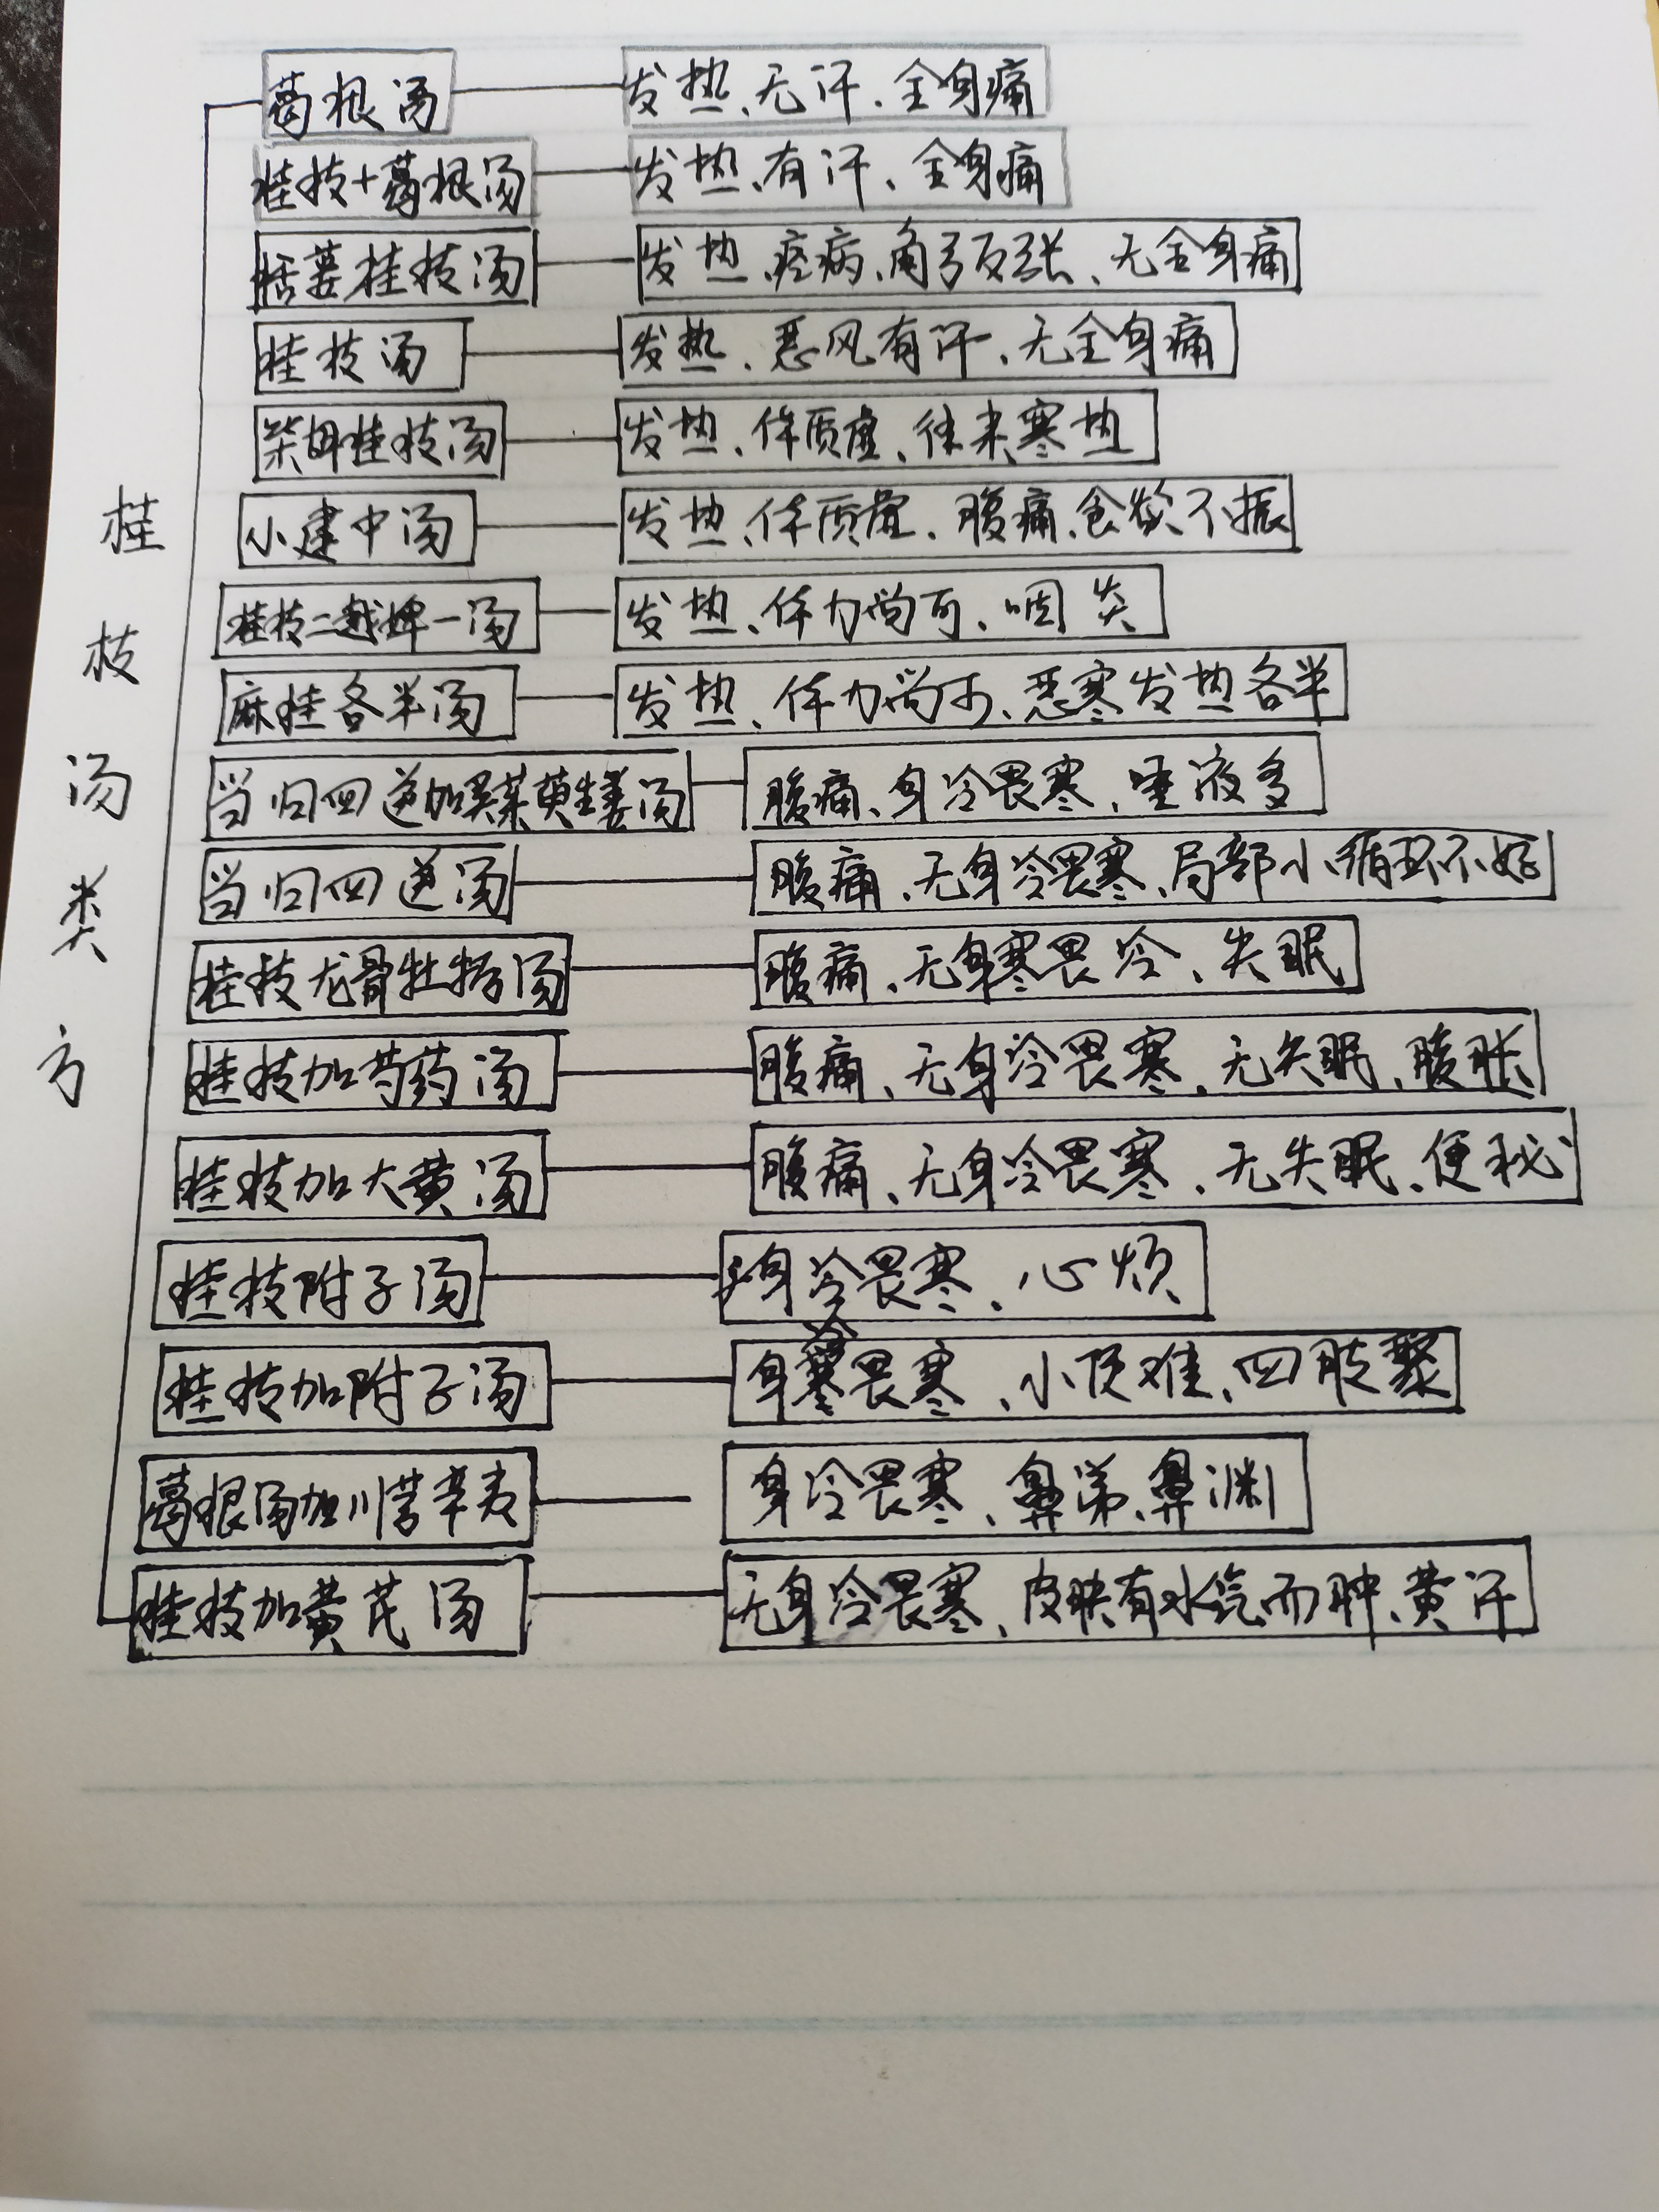 桂枝汤类方
葛根汤 发热、无汗、全身痛
桂枝+葛根汤 发热、有汗、全身痛
栝蒌桂枝汤 发热、痉病、角弓反张、无全身痛
桂枝汤 发热、恶风有汗、无全身痛
柴胡桂枝汤 发热、体质虚、往来寒热
小建中汤 发热、体质虚、腹痛、食欲不振
桂枝二越婢一汤 发热、体力尚可、咽炎
麻桂各半汤 发热、体力尚可、恶寒发热各半
当归四逆加吴茱萸生姜汤 腹痛、身冷畏寒、唾液多
当归四逆汤 腹痛、无身冷畏寒、局部小循环不好
桂枝龙骨牡蛎汤 腹痛、无身寒畏冷、失眠
桂枝加芍药汤 腹痛、无身冷畏寒、无失眠、腹胀
桂枝加大黄汤 腹痛、无身冷畏寒、无失眠、便秘
桂枝附子汤 身冷畏寒、心烦
桂枝加附子汤 身冷畏寒、小便难、四肢聚
葛根汤加川芎辛夷 身冷畏寒、鼻涕、鼻渊
桂枝加黄芪汤 无身冷畏寒、皮肤有水气而肿、黄汗